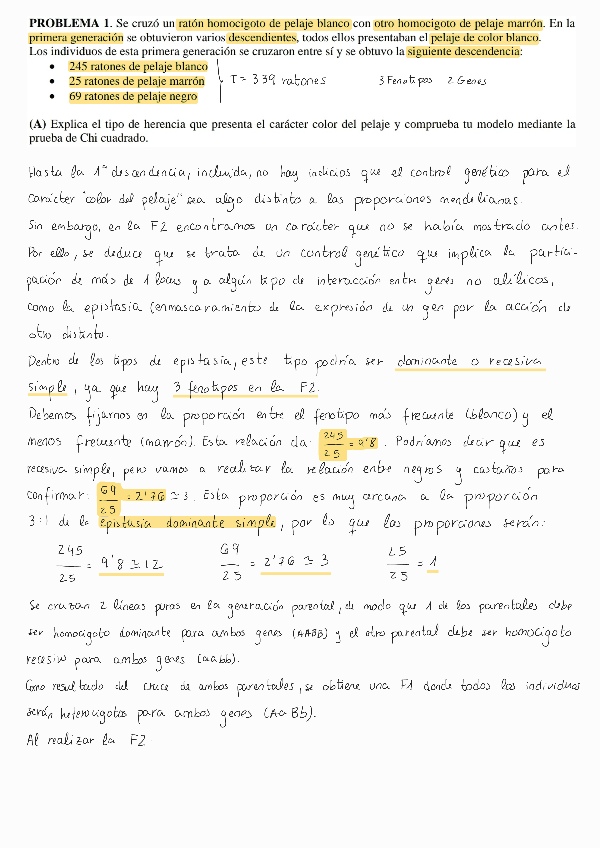 PROBLEMA 1. Se cruzó un ratón homocigoto de pelaje blanco con otro homocigoto de pelaje marrón. En la
primera generación se obtuvieron varios descendientes, todos ellos presentaban el pelaje de color blanco.
Los individuos de esta primera generación se cruzaron entre sí y se obtuvo la siguiente descendencia:
• 245 ratones de pelaje blanco
• 25 ratones de pelaje marrón T = 339 ratones 3 Fenotipos 2 Genes
• 69 ratones de pelaje negro
(A) Explica el tipo de herencia que presenta el carácter color del pelaje y comprueba tu modelo mediante la
prueba de Chi cuadrado.
Hasta la 1ª descendencia, incluida, no hay indicios que el control genético para el
carácter "color del pelaje" sea algo distinto a las proporciones mendelianas.
Sin embargo, en la F2 encontramos un carácter que no se había mostrado antes.
Por ello, se deduce que se trata de un control genético que implica la partici-
pación de más de 1 locus y a algún tipo de interacción entre genes no alélicos,
como la epistasia (enmascaramiento de la expresión de un gen por la acción de
otro distinto.
Dentro de los tipos de epistasia, este tipo podría ser dominante o recesiva
simple, ya que hay 3 fenotipos en la F2.
Debemos fijarnos en la proporción entre el fenotipo más frecuente (blanco) y el
menos frecuente (marrón). Esta relación da: 245/25 = 9'8. Podríamos decir que es
recesiva simple, pero vamos a realizar la relación entre negros y castaños para
confirmar: 69/25 = 2'76 ≃ 3. Esta proporción es muy cercana a la proporción
3:1 de la epistasia dominante simple, por lo que las proporciones serán:
245/25 = 9'8 ≃ 12 69/25 = 2'76 ≃ 3 25/25 = 1
Se cruzan 2 líneas puras en la generación parental, de modo que 1 de los parentales debe
ser homocigoto dominante para ambos genes (AABB) y el otro parental debe ser homocigoto
recesivo para ambos genes (aabb).
Como resultado del cruce de ambos parentales, se obtiene una F1 donde todos los individuos
serán heterocigotos para ambos genes (AaBb).
Al realizar la F2